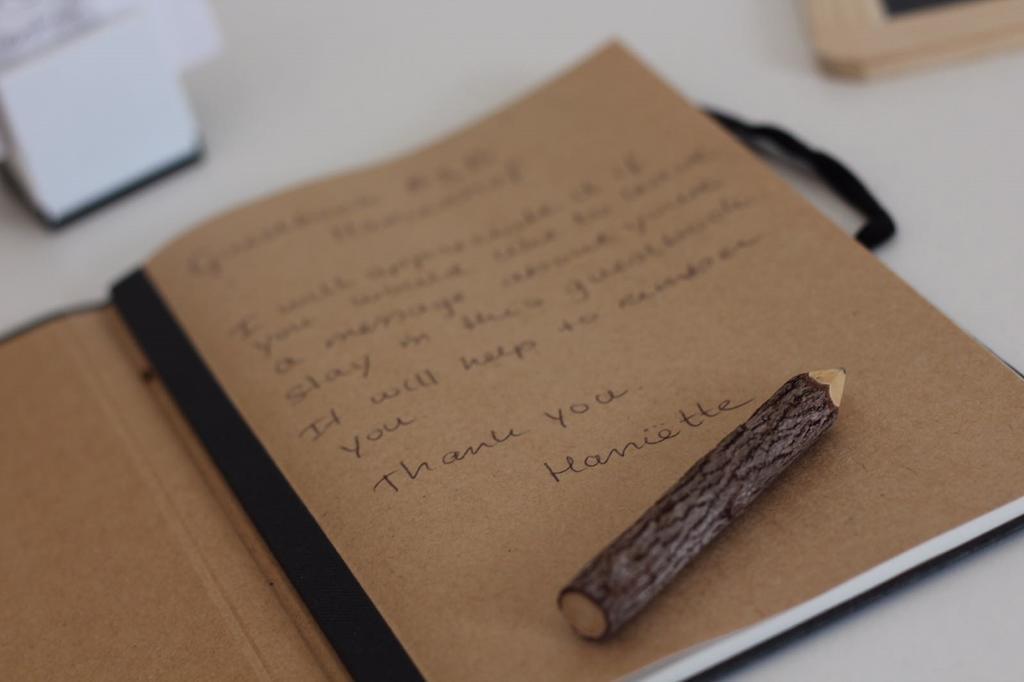 Guestbook B&B
I will appreciate it if
you would like to leave
a message around your
stay in this guestbook
It will help to remember
you
Thank you.
Mariëtte